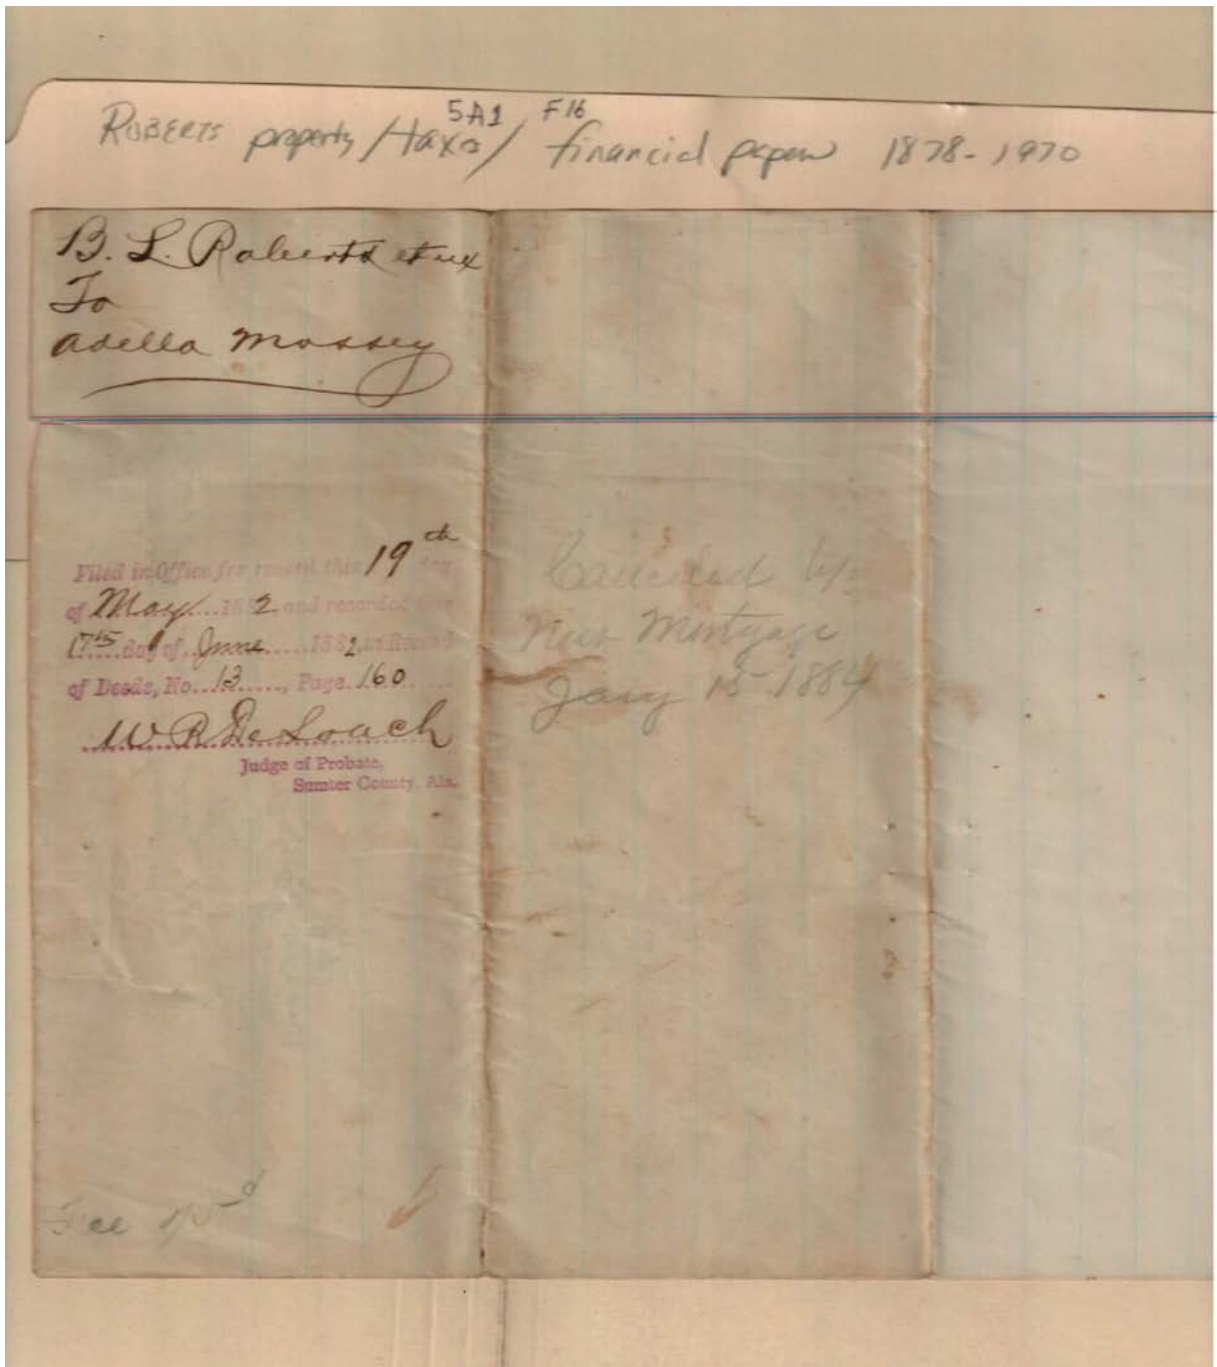 5A1 F16
ROBERTS property / taxes / financial papers 1878-1970
B. L. Roberts et ux
To
Adella Massey
Filed in Office for record this 19th day
of May 1882 and recorded this
17th day of June 1882, in Record
of Deeds, No. 13, Page 160
W R DeLoach
Judge of Probate,
Sumter County, Ala.
Canceled by
New Mortgage
Jany 15 1884
Fee